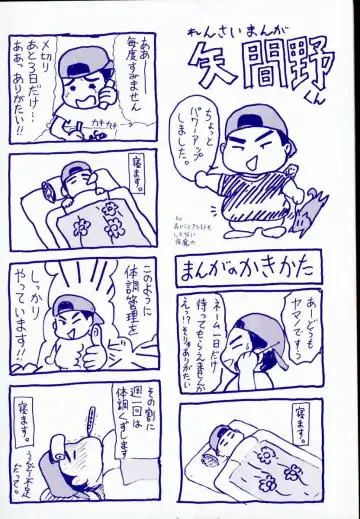 れんさいまんが
矢間野くん
ちょっと
パワーアップ
しました。
まんがのかきかた
あ、どうも
ヤマノですう
ネーム一日だけ
待ってもらえませんか
えっ?そりゃありがたい
寝ます。
ああ
毎度すみません
メ切り
あと3日だけ…
ああっありがたい!!
カキ カキ
寝ます。
このように
体調管理を
しっかり
やっています!!
その割に
週一回は
体調くずします
寝ます。